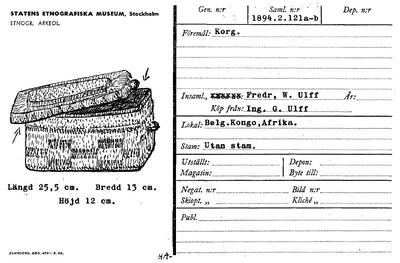 STATENS ETNOGRAFISKA MUSEUM, Stockholm
ETNOGR. ARKEOL.
Längd 25,5 cm. Bredd 13 cm.
Höjd 12 cm.
Gen. n:r Saml. n:r Dep. n:r
1894.2.121a-b
Föremål: Korg.
Insaml., xxxxxx: Fredr, W. Ulff År:
Köp från: Ing. G. Ulff
Lokal: Belg.Kongo,Afrika.
Stam: Utan stam.
Utställt: Depon:
Magasin: Byte till:
Negat. n:r Bild n:r
Skiopt. „ Kliché „
Publ.